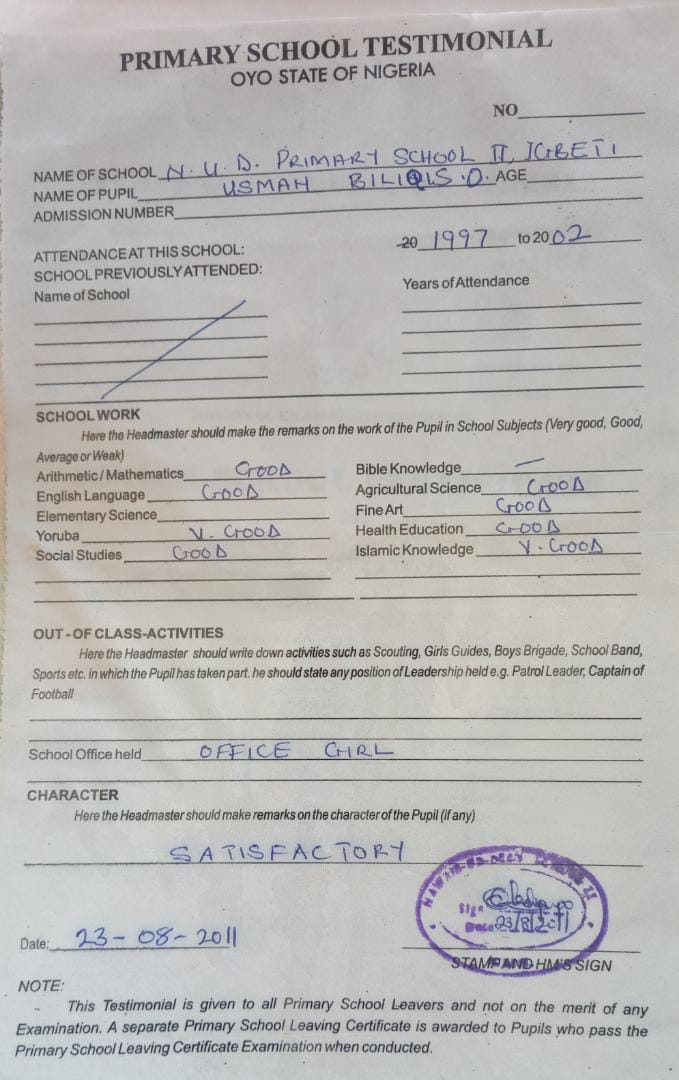 PRIMARY SCHOOL TESTIMONIAL
OYO STATE OF NIGERIA
NO
NAME OF SCHOOL N. U. D. PRIMARY SCHOOL II, IGBETI
NAME OF PUPIL USMAN BILIQIS .O. AGE
ADMISSION NUMBER
ATTENDANCE AT THIS SCHOOL: 20 1997 to 20 02
SCHOOL PREVIOUSLY ATTENDED:
Name of School Years of Attendance
SCHOOL WORK
Here the Headmaster should make the remarks on the work of the Pupil in School Subjects (Very good, Good,
Average or Weak)
Arithmetic / Mathematics GOOD Bible Knowledge —
English Language GOOD Agricultural Science GOOD
Elementary Science Fine Art GOOD
Yoruba V. GOOD Health Education GOOD
Social Studies GOOD Islamic Knowledge V. GOOD
OUT - OF CLASS-ACTIVITIES
Here the Headmaster should write down activities such as Scouting, Girls Guides, Boys Brigade, School Band,
Sports etc. in which the Pupil has taken part. he should state any position of Leadership held e.g. Patrol Leader, Captain of
Football
School Office held OFFICE GIRL
CHARACTER
Here the Headmaster should make remarks on the character of the Pupil (if any)
SATISFACTORY
Sign
Date 23/8/2011
Date: 23-08-2011
STAMP AND HM'S SIGN
NOTE:
This Testimonial is given to all Primary School Leavers and not on the merit of any
Examination. A separate Primary School Leaving Certificate is awarded to Pupils who pass the
Primary School Leaving Certificate Examination when conducted.